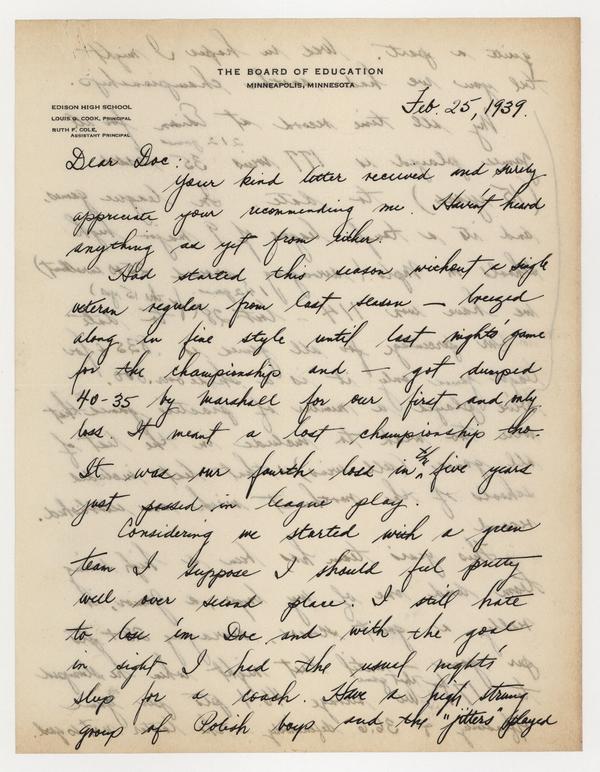 THE BOARD OF EDUCATION
MINNEAPOLIS, MINNESOTA
EDISON HIGH SCHOOL
LOUIS G. COOK, PRINCIPAL
RUTH F. COLE,
ASSISTANT PRINCIPAL
Feb. 25, 1939.
Dear Doc:
Your kind letter received and surely
appreciate your recommending me. Haven't heard
anything as yet from either.
Had started this season without a single
veteran regular from last season — breezed
along in fine style until last nights' game
for the championship and — got dumped
40-35 by Marshall for our first and only
loss. It meant a lost championship tho.
It was our fourth loss in the five years
just passed in league play.
Considering we started with a green
team I suppose I should feel pretty
well over second place. I still hate
to lose 'em Doc and with the goal
in sight I had the usual nights'
sleep for a coach. Have a high strung
group of Polish boys and the "jitters" played